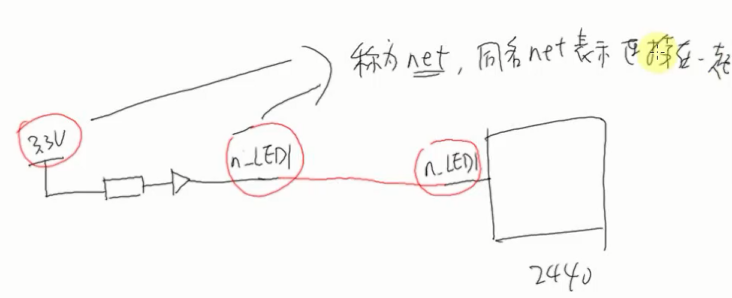 称为net，同名net表示连接在一起
3.3V
n_LED1
n_LED1
2440